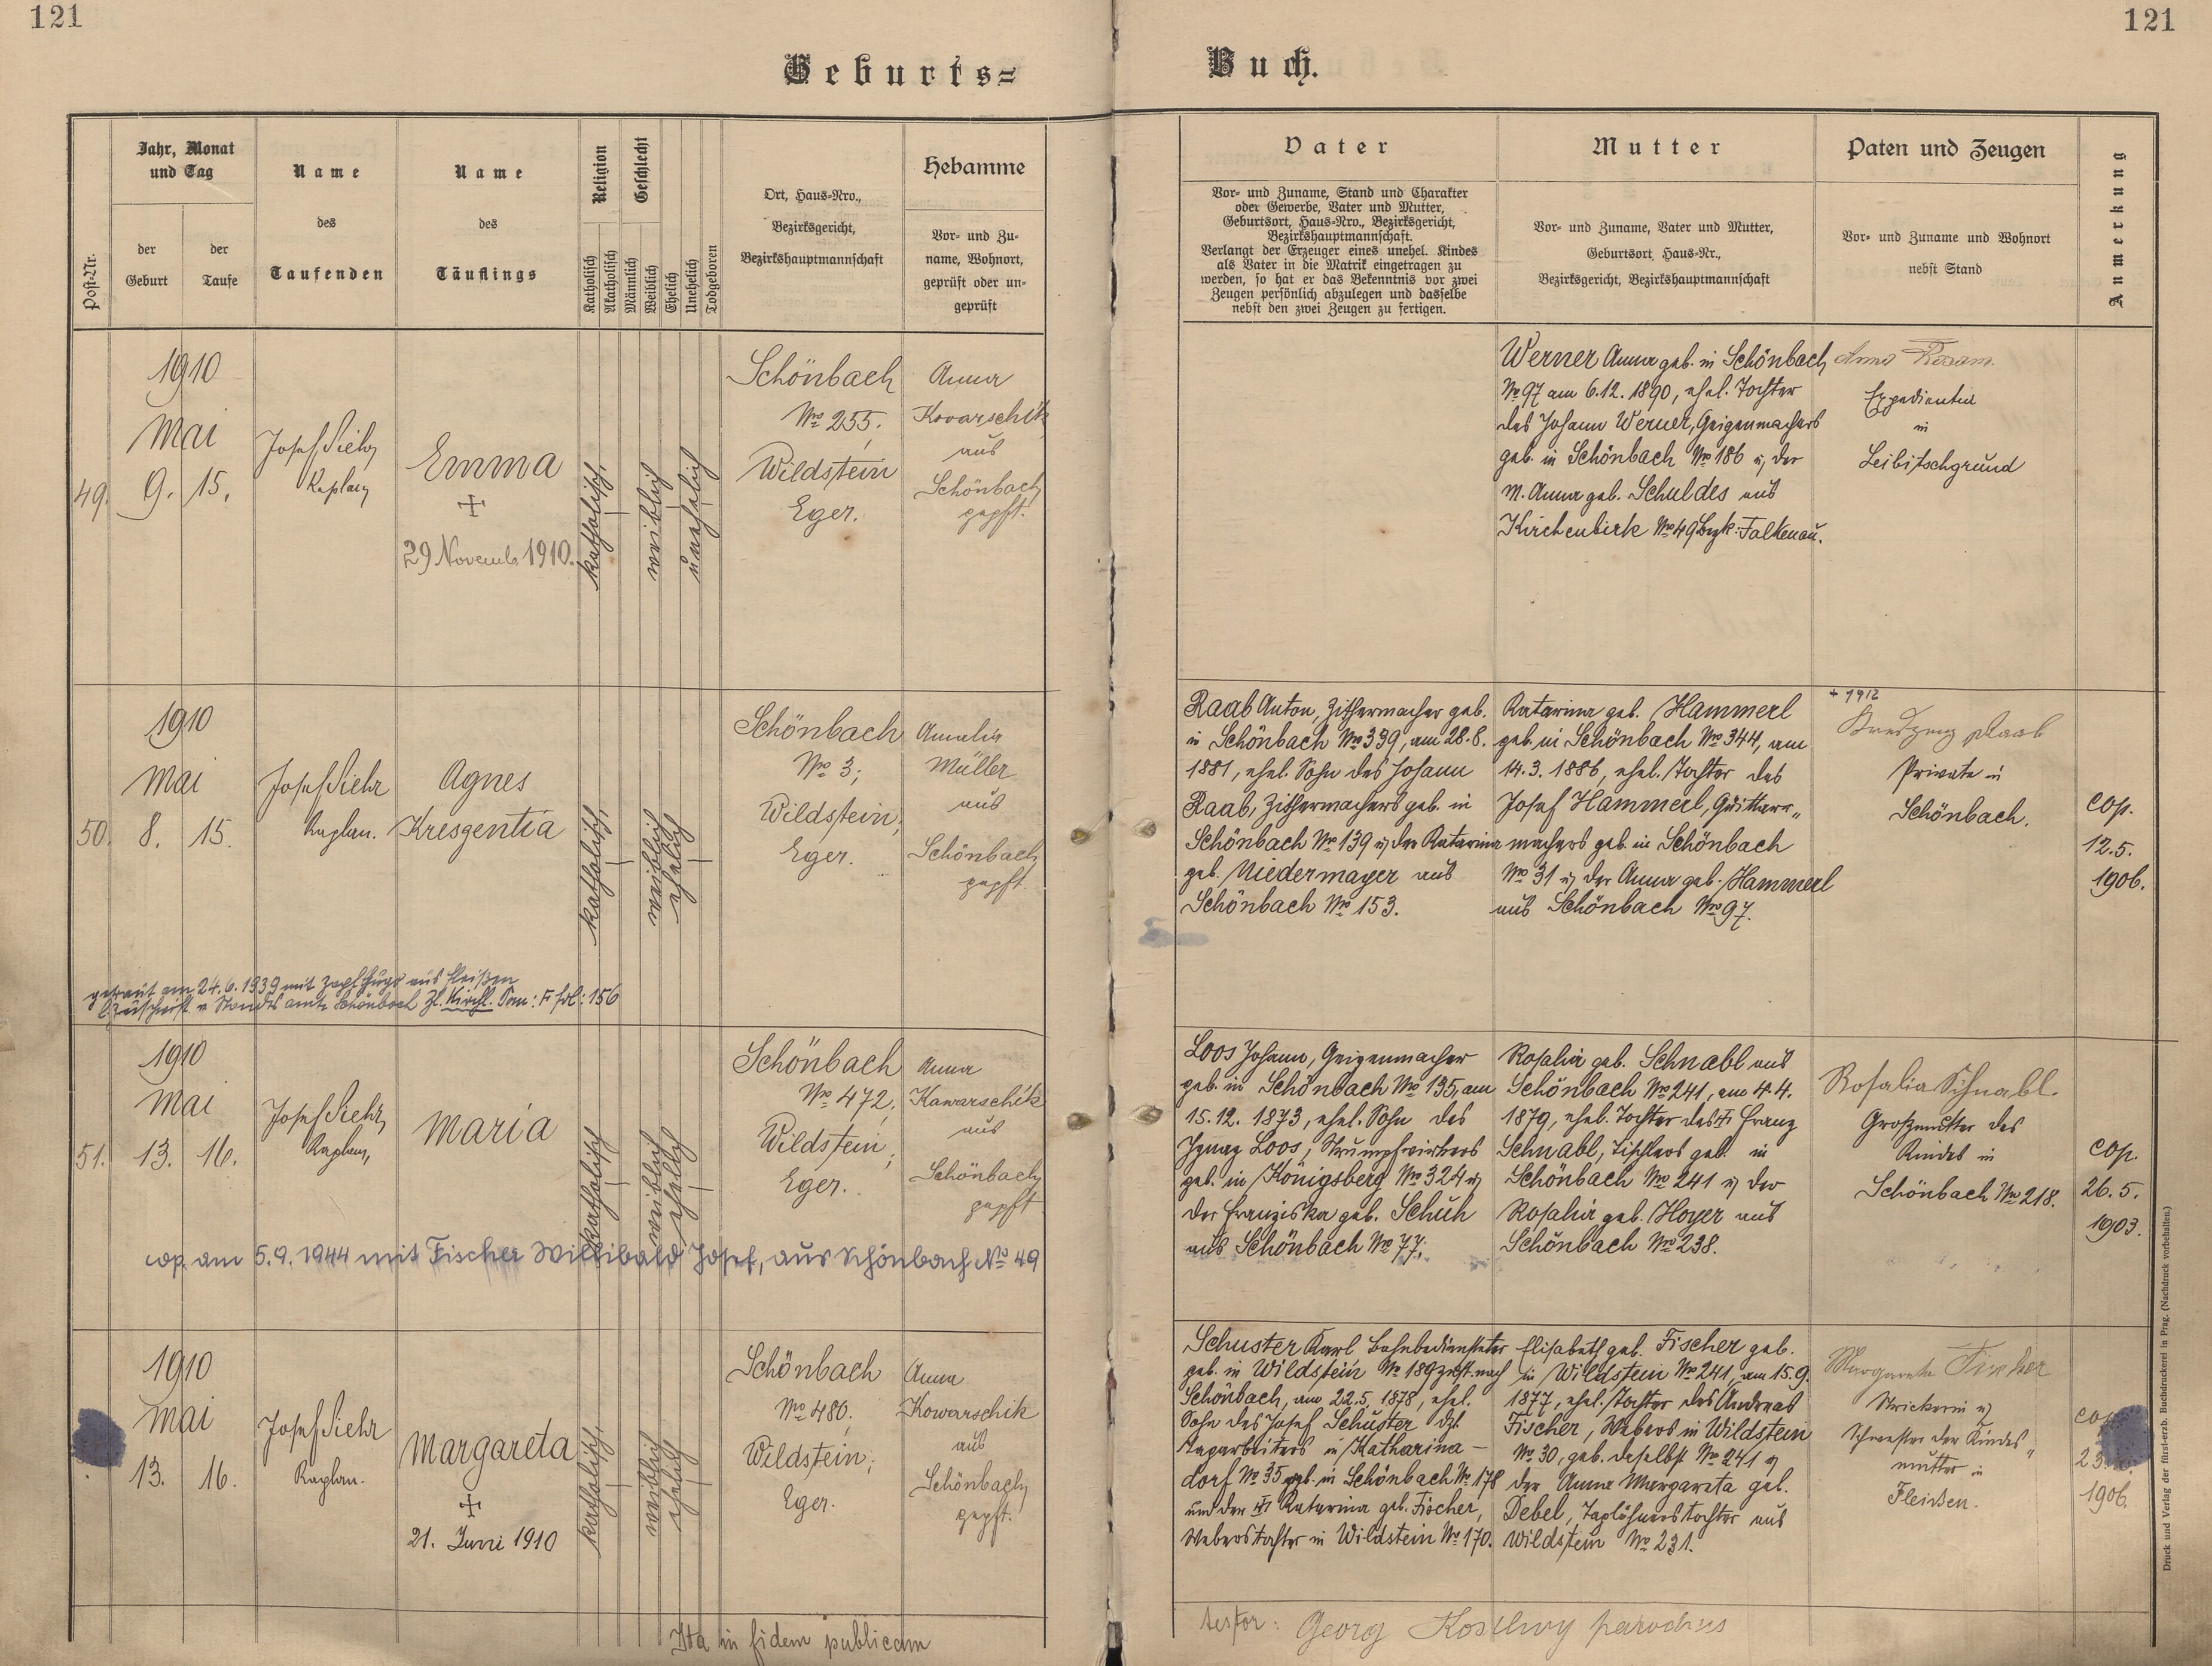 121
121
Geburts=
Buch.
Post-Nr.
Jahr, Monat
und Tag
der
Geburt
der
Taufe
Name
des
Taufenden
Name
des
Täuflings
Religion
Katholisch
Akatholisch
Geschlecht
Männlich
Weiblich
Ehelich
Unehelich
Todgeboren
Ort, Haus=Nro.,
Bezirksgericht,
Bezirkshauptmannschaft
Hebamme
Vor= und Zu=
name, Wohnort,
geprüft oder un=
geprüft
Vater
Vor= und Zuname, Stand und Charakter
oder Gewerbe, Vater und Mutter,
Geburtsort, Haus=Nro., Bezirksgericht,
Bezirkshauptmannschaft.
Verlangt der Erzeuger eines unehel. Kindes
als Vater in die Matrik eingetragen zu
werden, so hat er das Bekenntnis vor zwei
Zeugen persönlich abzulegen und dasselbe
nebst den zwei Zeugen zu fertigen.
Mutter
Vor= und Zuname, Vater und Mutter,
Geburtsort, Haus=Nr.,
Bezirksgericht, Bezirkshauptmannschaft
Paten und Zeugen
Vor= und Zuname und Wohnort
nebst Stand
Anmerkung
49.
1910
Mai
9. 15.
Josef Siehr
Kaplan
Emma
+
29 Novemb. 1910.
katholisch,
weiblich
unehelich
Schönbach
No 255.
Wildstein
Eger.
Anna
Kovarschik
aus
Schönbach
gepft.
Werner Anna geb. in Schönbach
No 97 am 6.12.1890, ehel. Tochter
des Johann Werner, Geigenmachers
geb. in Schönbach No 186 u. der
M. Anna geb. Schuldes aus
Kirchenbirk No 49 Bezk: Falkenau.
Anna
Expedientin
in
Leibitschgrund
50.
1910
Mai
8. 15.
Josef Siehr
Kaplan.
Agnes
Kresgentia
katholisch,
weiblich
ehelich
Schönbach
No 3;
Wildstein;
Eger.
Amalia
Müller
aus
Schönbach
gepft.
Raab Anton, Zithermacher geb.
in Schönbach No 339, am 28.8.
1881, ehel. Sohn des Johann
Raab, Zithermachers geb. in
Schönbach No 139 u. der Katarina
geb. Niedermayer aus
Schönbach No 153.
Katarina geb. Hammerl
geb. in Schönbach No 344, am
14.3.1886, ehel. Tochter des
Josef Hammerl, Guittarr„
machers geb. in Schönbach
No 31 u. der Anna geb. Hammerl
aus Schönbach No 97.
+ 1912
Raab
Private in
Schönbach.
cop.
12.5.
1906.
getraut am 24.6.1939 mit Zapf Hugo aus Fleißen
Zuschrift v. Standesamte Schönbach Zl. Kirchl. Tom: F fol: 156
51.
1910
Mai
13. 16.
Josef Siehr
Kaplan,
Maria
katholisch
weiblich
ehelich
Schönbach
No 472,
Wildstein;
Eger.
Anna
Kawarschik
aus
Schönbach
gepft
Loos Johann, Geigenmacher
geb. in Schönbach No 135, am
15.12.1873, ehel. Sohn des
Ignaz Loos, Strumpfwirkers
geb. in Königsberg No 324 u.
der Franziska geb. Schuh
aus Schönbach No 77;
Rosalia geb. Schnabl aus
Schönbach No 241, am 4.4.
1879, ehel. Tochter des Franz
Schnabl, Tischlers geb. in
Schönbach No 241 u. der
Rosalia geb. Hoyer aus
Schönbach No 238.
Rosalia Schnabl.
Großmutter des
Kindes in
Schönbach No 218.
cop.
26.5.
1903.
cop. am 5.9.1944 mit Fischer Willibald Josef, aus Schönbach No 49
1910
Mai
13. 16.
Josef Siehr
Kaplan.
Margareta
+
21. Juni 1910
katholisch,
weiblich
ehelich
Schönbach
No 480.
Wildstein;
Eger.
Anna
Kowarschik
aus
Schönbach
gepft.
Schuster Karl Bahnbediensteter
geb. in Wildstein No 189 zust. nach
Schönbach, am 22.5.1878, ehel.
Sohn des Josef Schuster
Tagarbeiters in Katharina-
dorf No 35 geb. in Schönbach No 178
und der Katarina geb. Fischer,
Weberstochter in Wildstein No 170.
Elisabeth geb. Fischer geb.
in Wildstein No 241 am 15.9.
1877, ehel. Tochter des Andreas
Fischer, Webers in Wildstein
No 30, geb. daselbst No 241 u.
der Anna Margareta geb.
Debel, Taglöhnerstochter aus
Wildstein No 231.
Margareta Fischer
Strickerin u.
Schwester der Kindes„
mutter in
Fleißen.
1906.
Ita in fidem publicam
testor: Georg parochus
Druck und Verlag der fürst-erzb. Buchdruckerei in Prag. (Nachdruck vorbehalten.)